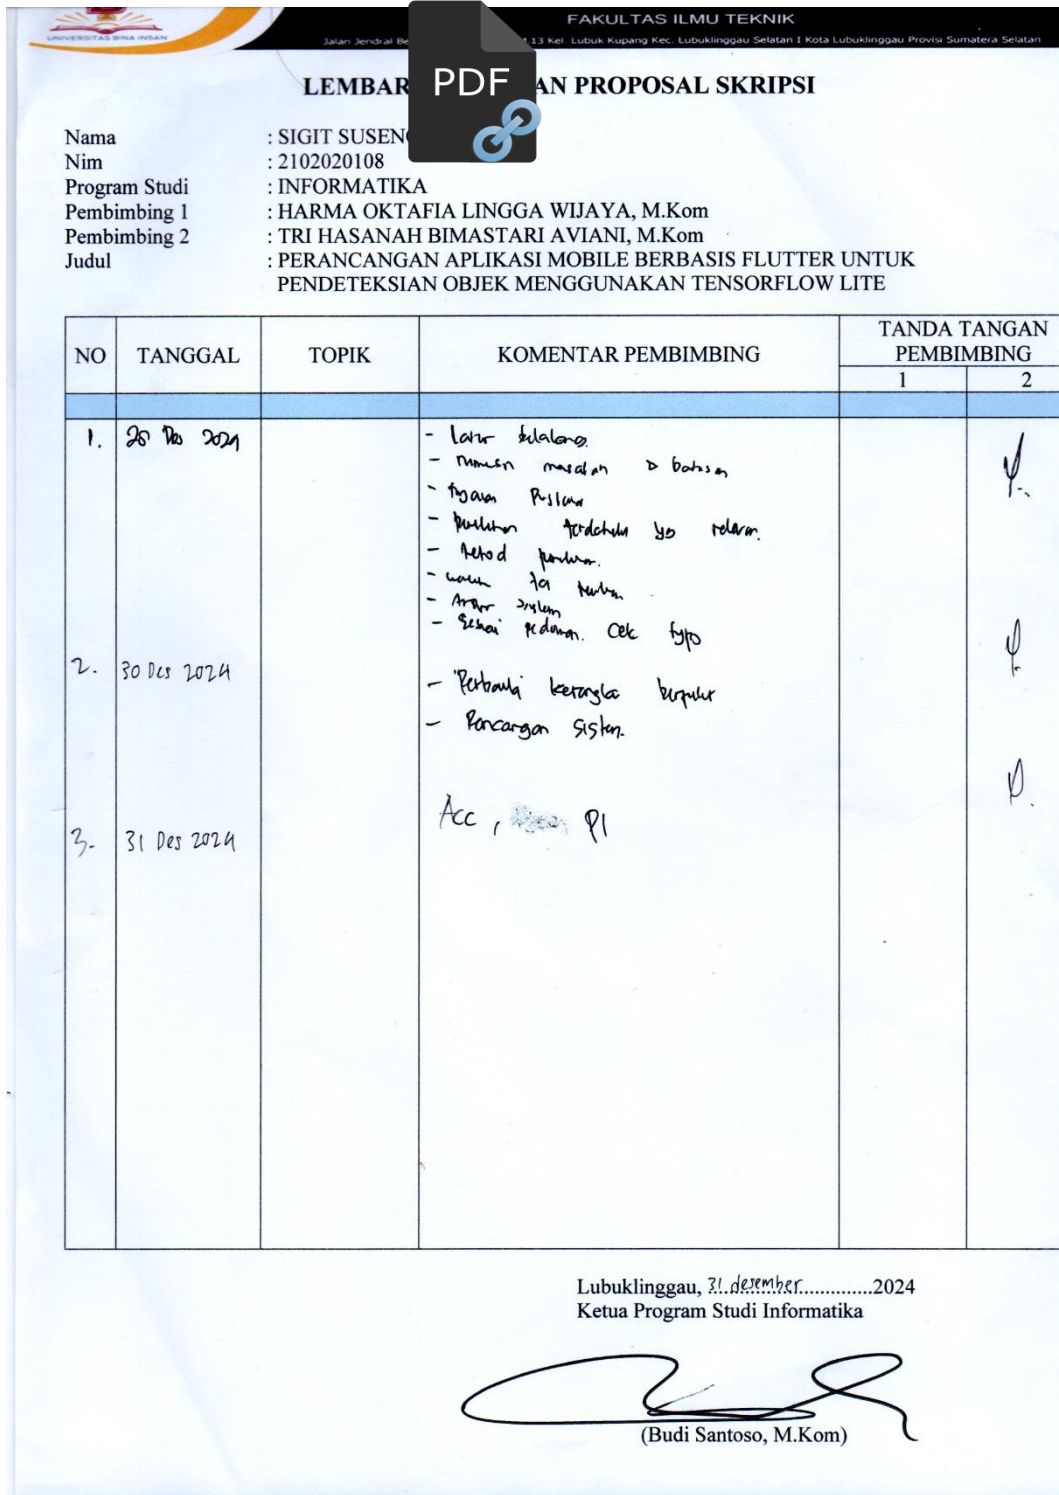 UNIVERSITAS BINA INSAN
FAKULTAS ILMU TEKNIK
Jalan Jendral Be 13 Kel. Lubuk Kupang Kec. Lubuklinggau Selatan I Kota Lubuklinggau Provisi Sumatera Selatan
PDF
LEMBAR AN PROPOSAL SKRIPSI
Nama : SIGIT SUSEN
Nim : 2102020108
Program Studi : INFORMATIKA
Pembimbing 1 : HARMA OKTAFIA LINGGA WIJAYA, M.Kom
Pembimbing 2 : TRI HASANAH BIMASTARI AVIANI, M.Kom
Judul : PERANCANGAN APLIKASI MOBILE BERBASIS FLUTTER UNTUK
PENDETEKSIAN OBJEK MENGGUNAKAN TENSORFLOW LITE
NO TANGGAL TOPIK KOMENTAR PEMBIMBING TANDA TANGAN
PEMBIMBING
1 2
1. Des 2024 - latar belakang
- rumusan masalah batasan
- tujuan
- terdahulu yg relevan.
- 
- sistem
- Sesuai pedoman. Cek typo
2. 30 Des 2024
- Perbaiki kerangka berpikir
- Rancangan Sistem.
Acc, P1
3. 31 Des 2024
Lubuklinggau, 31 desember 2024
Ketua Program Studi Informatika
(Budi Santoso, M.Kom)